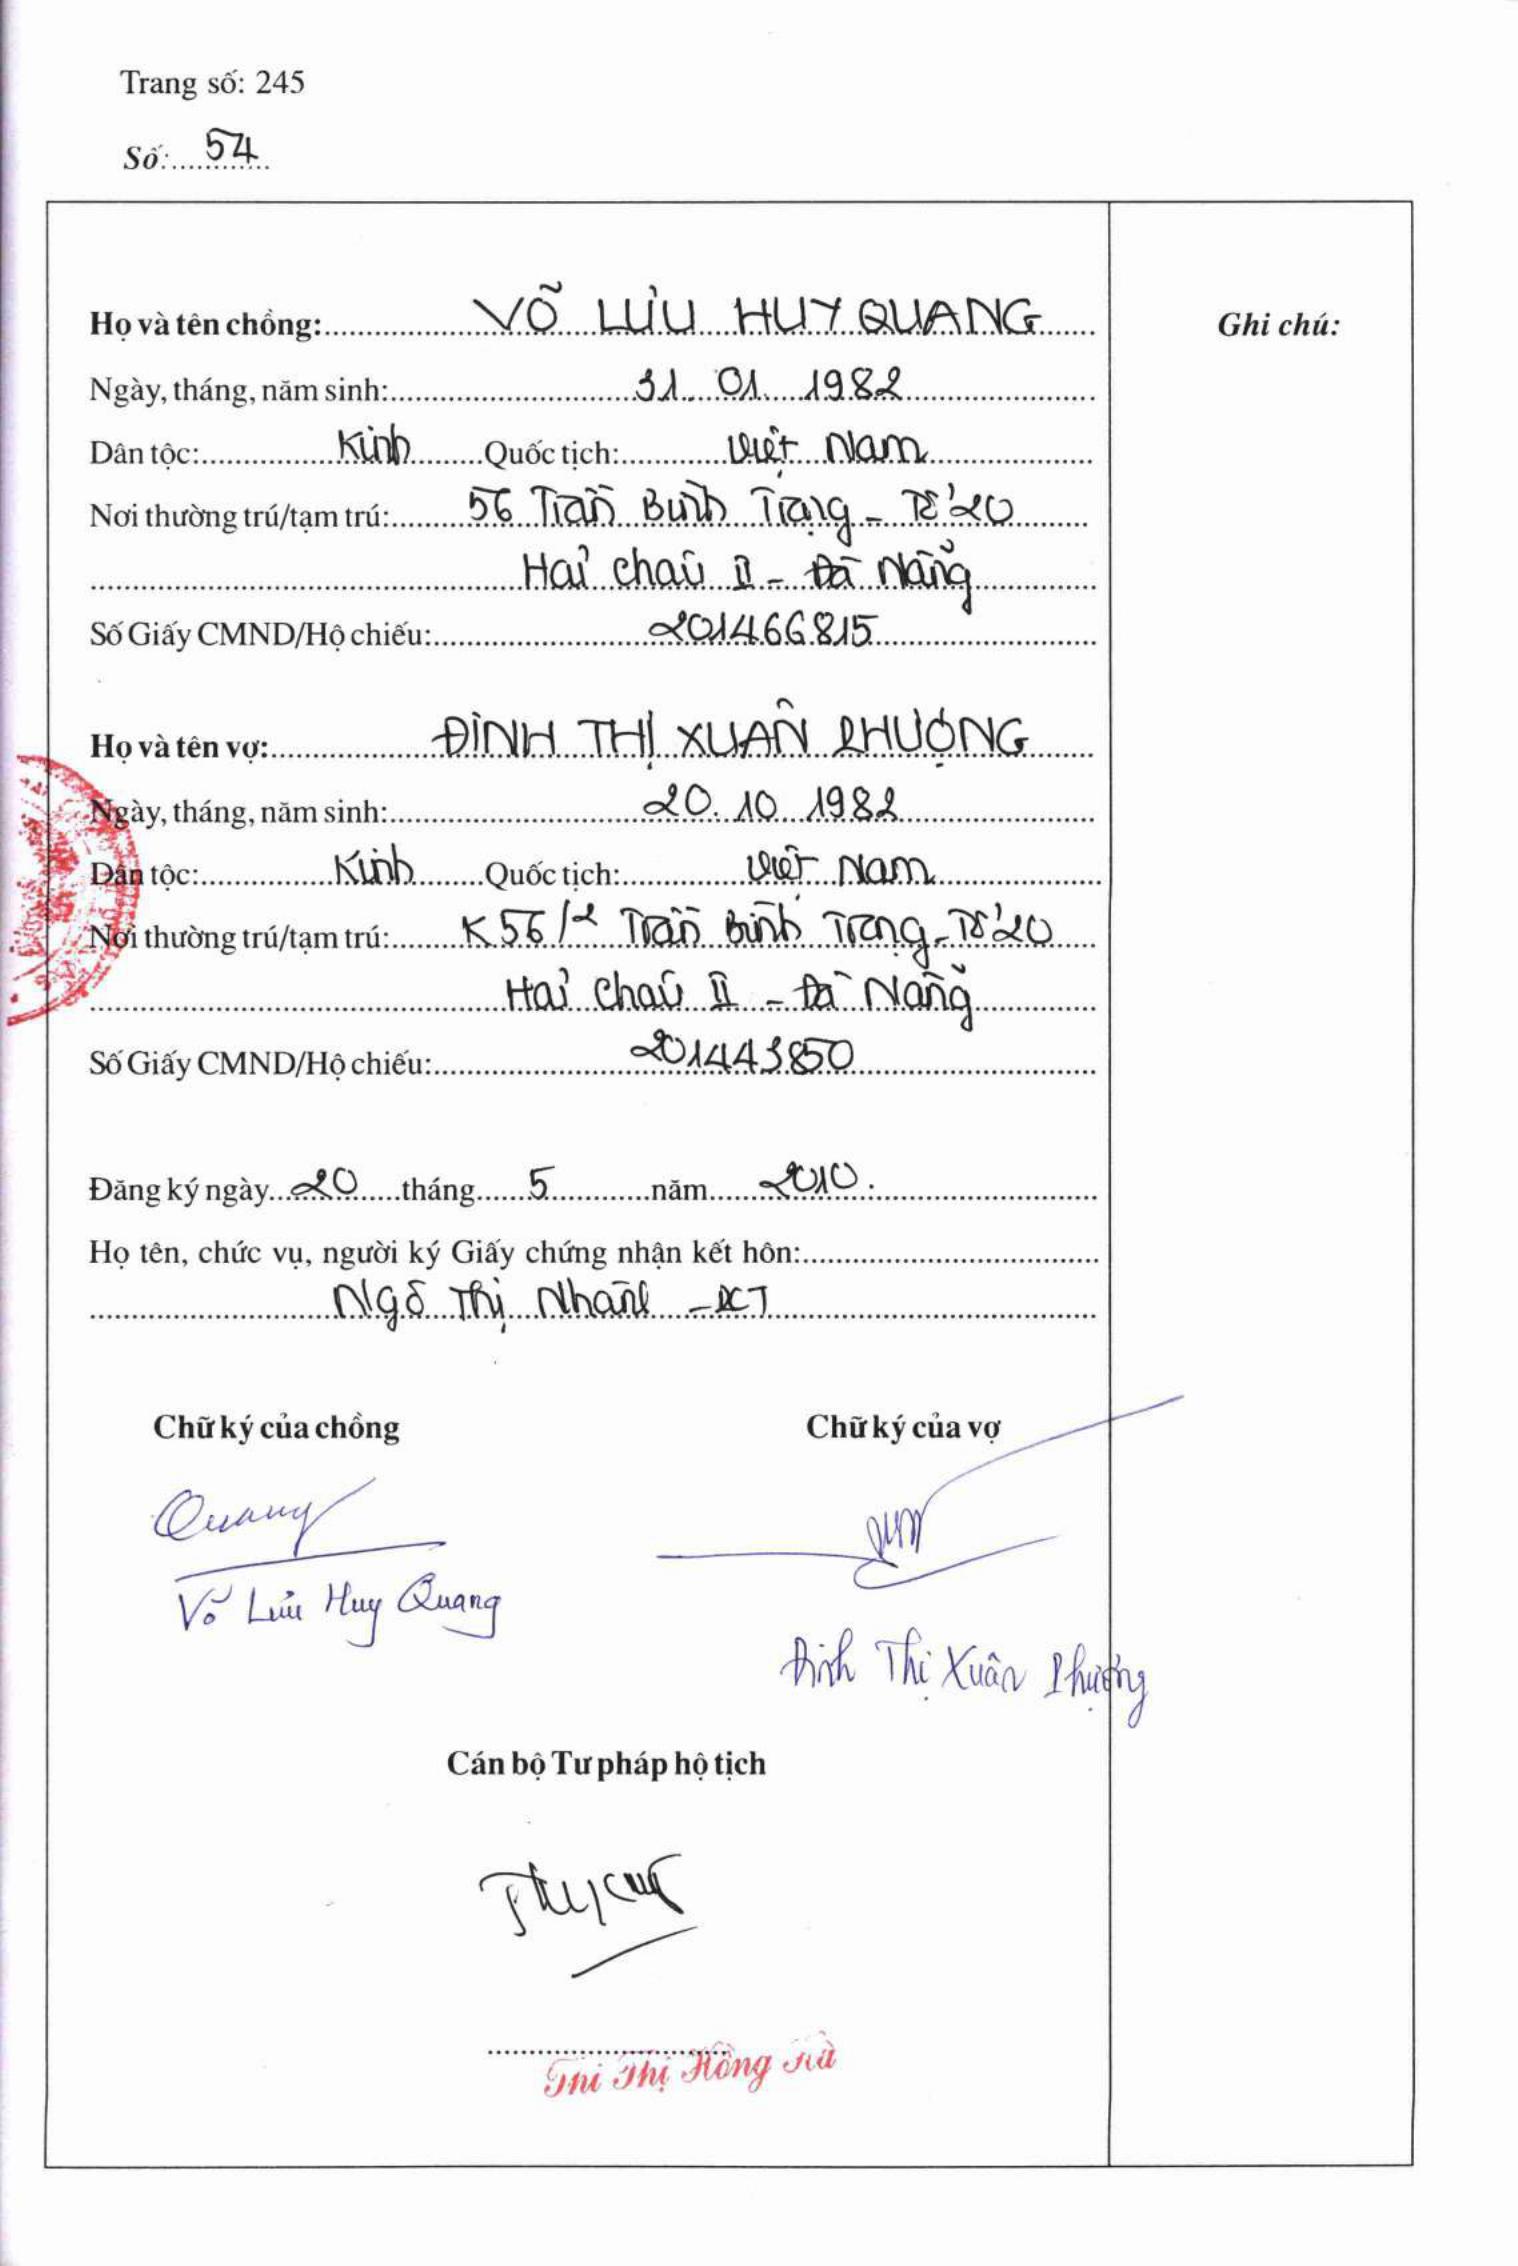 Trang số: 245
Số: 54
Họ và tên chồng: VÕ LƯU HUY QUANG
Ghi chú:
Ngày, tháng, năm sinh: 31. 01. 1982
Dân tộc: Kinh Quốc tịch: Việt Nam
Nơi thường trú/tạm trú: 56 Trần Bình Trọng - Tổ 20
Hải Châu II - Đà Nẵng
Số Giấy CMND/Hộ chiếu: 201466815
Họ và tên vợ: ĐINH THỊ XUÂN PHƯỢNG
Ngày, tháng, năm sinh: 20. 10 1982
Dân tộc: Kinh Quốc tịch: Việt Nam
Nơi thường trú/tạm trú: K56/2 Trần Bình Trọng - Tổ 20
Hải Châu II - Đà Nẵng
Số Giấy CMND/Hộ chiếu: 201443850
Đăng ký ngày 20 tháng 5 năm 2010.
Họ tên, chức vụ, người ký Giấy chứng nhận kết hôn:
Ngô Thị Nhàn -
Chữ ký của chồng
Chữ ký của vợ
Quang
Võ Lưu Huy Quang
Đinh Thị Xuân Phượng
Cán bộ Tư pháp hộ tịch
Thị Hồng Hà